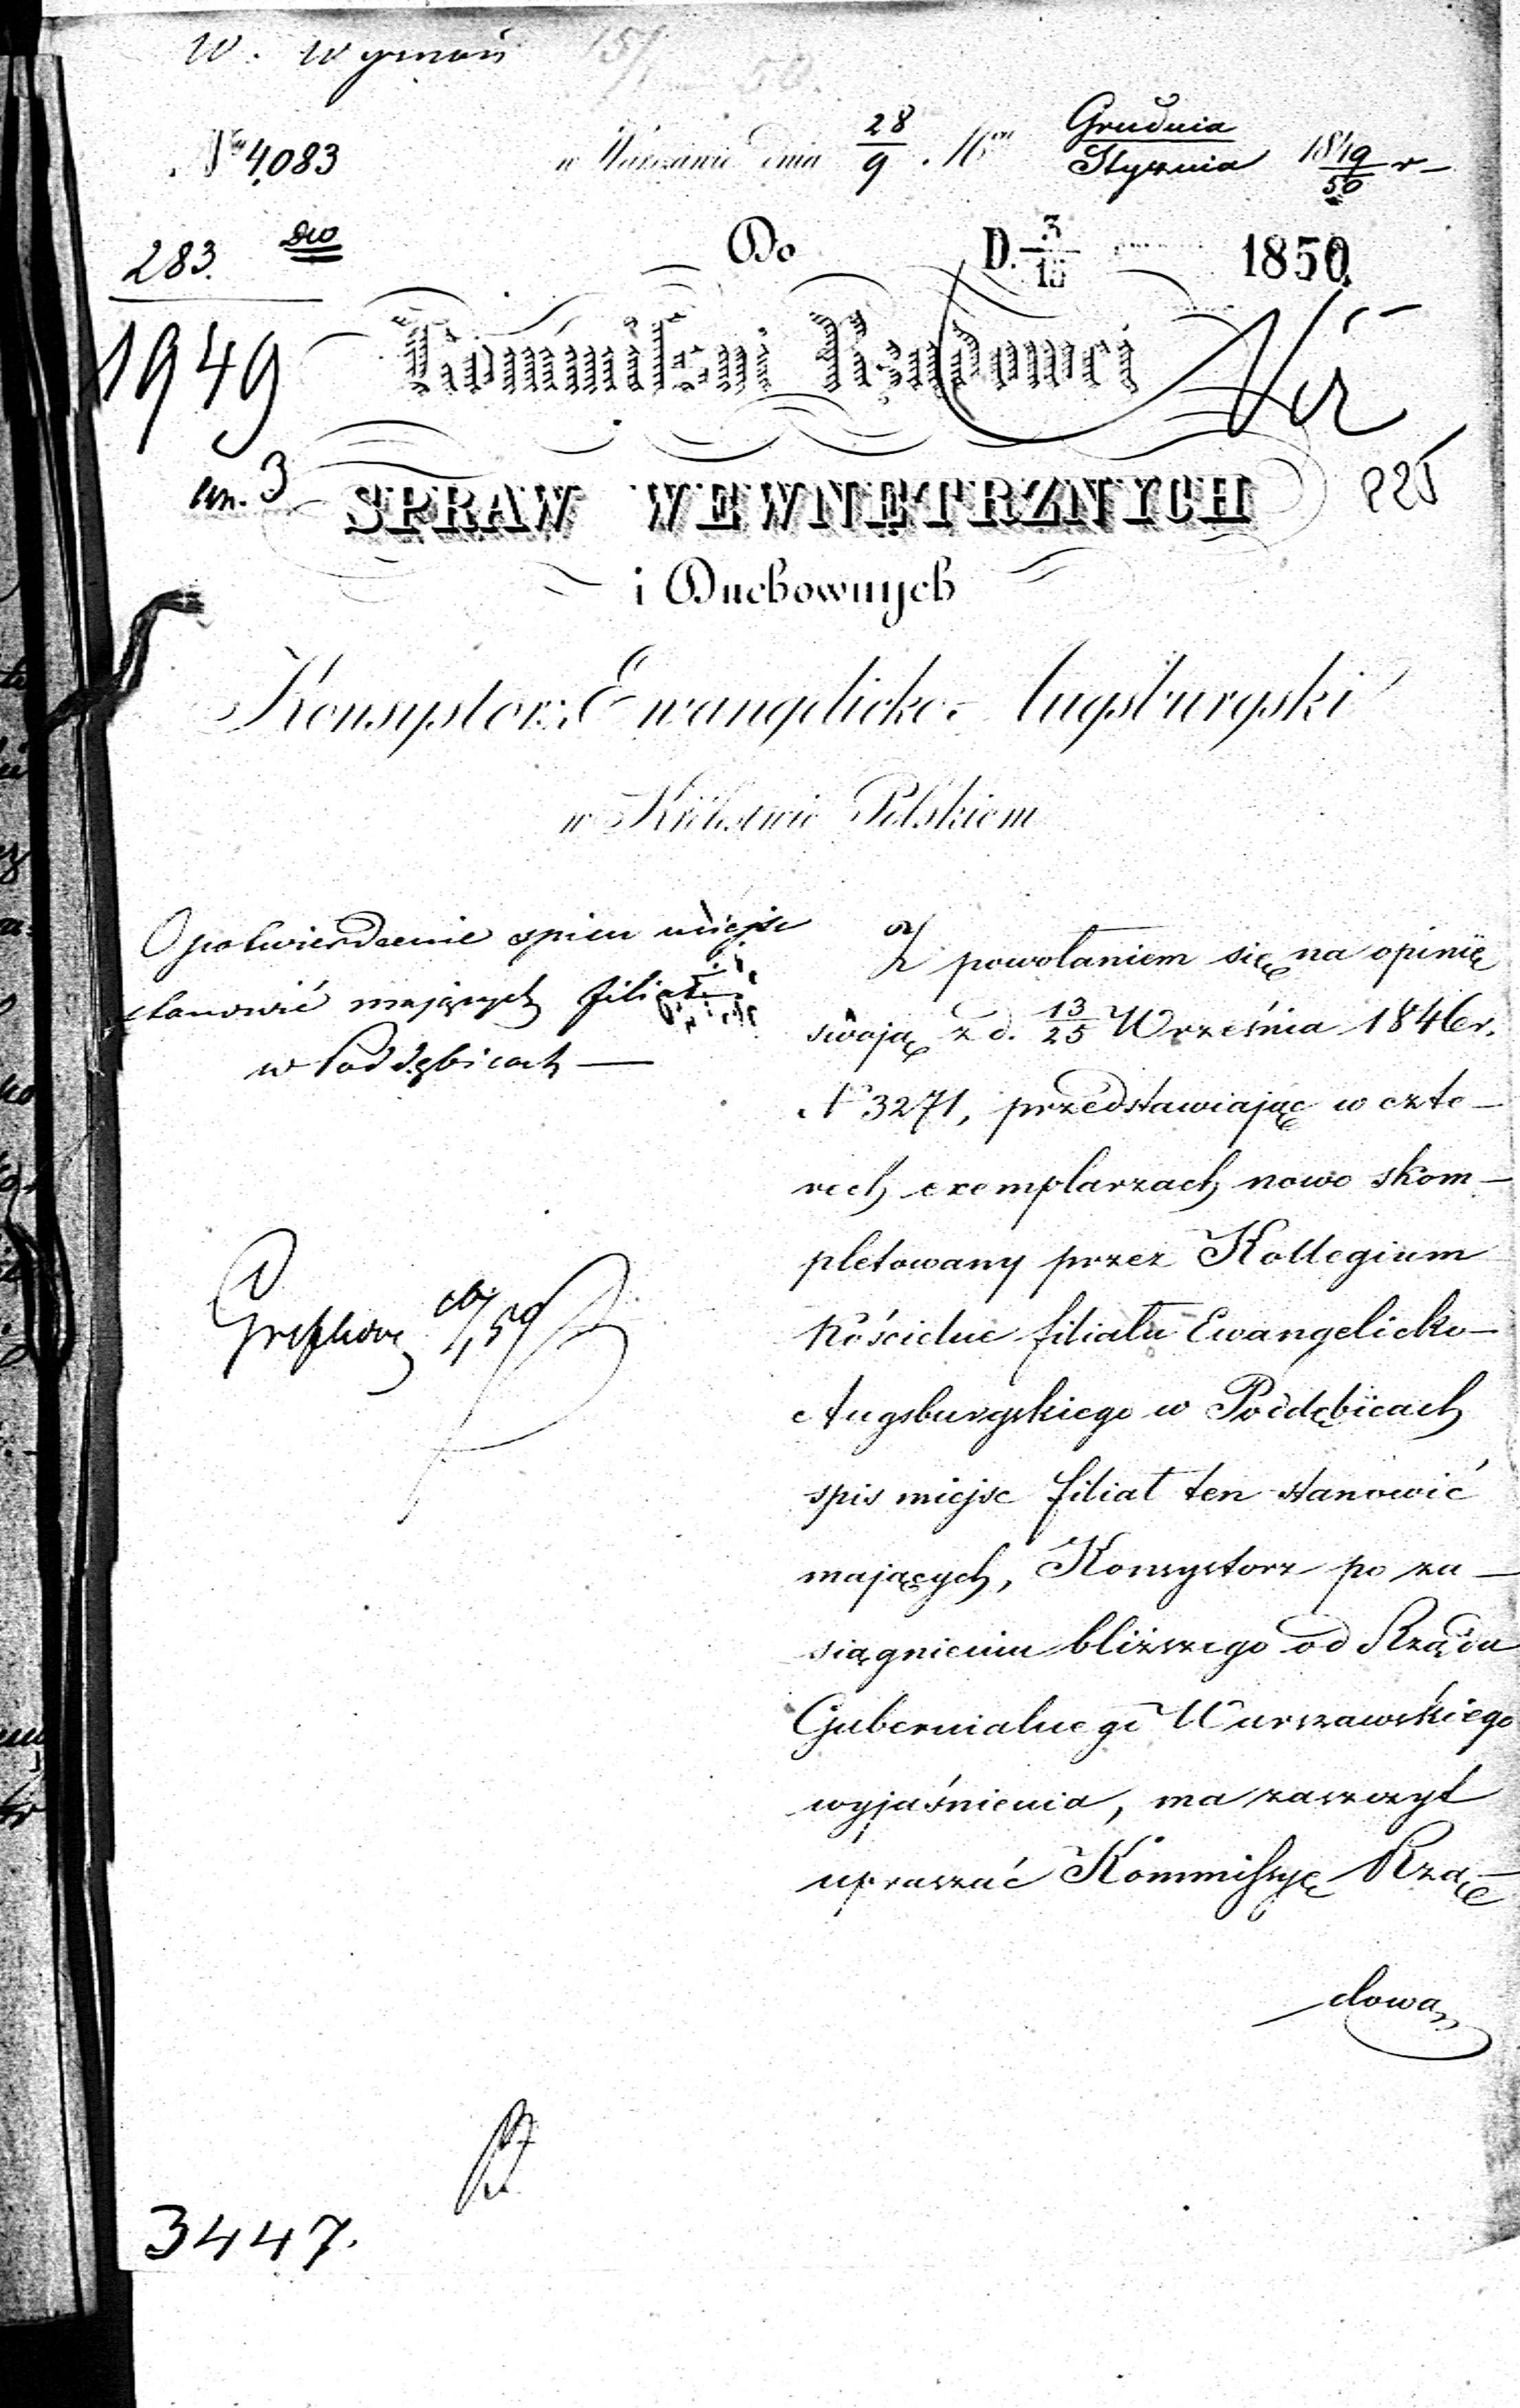 W. Wymań 15/1 50.
No 4,083
w Warszawie dnia 28/9 Mca Grudnia/Stycznia 1849/50 r
283.
Do
D. 3/15 1850.
1949
Kommissyi Rządowéj
SPRAW WEWNĘTRZNYCH
i Duchownych
Konsystorz Ewangelicko-Augsburgski
w Królestwie Polskiem
O potwierdzenie spisu miejsc
stanowić mających filiał
w Poddębicach —
Z powołaniem się na opinię
swoją z d. 13/25 Września 1846 r.
N 3271, przedstawiając w czte-
rech exemplarzach nowo skom-
pletowany przez Kollegium
Kościelne filiału Ewangelicko-
Augsburgskiego w Poddębicach
spis miejsc filiał ten stanowić
mających, Konsystorz po za-
siągnieniu bliższego od Rządu
Gubernialnego Warszawskiego
wyjaśnienia, ma zaszczyt
upraszać Kommissyę Rzą-
dowa
3447.